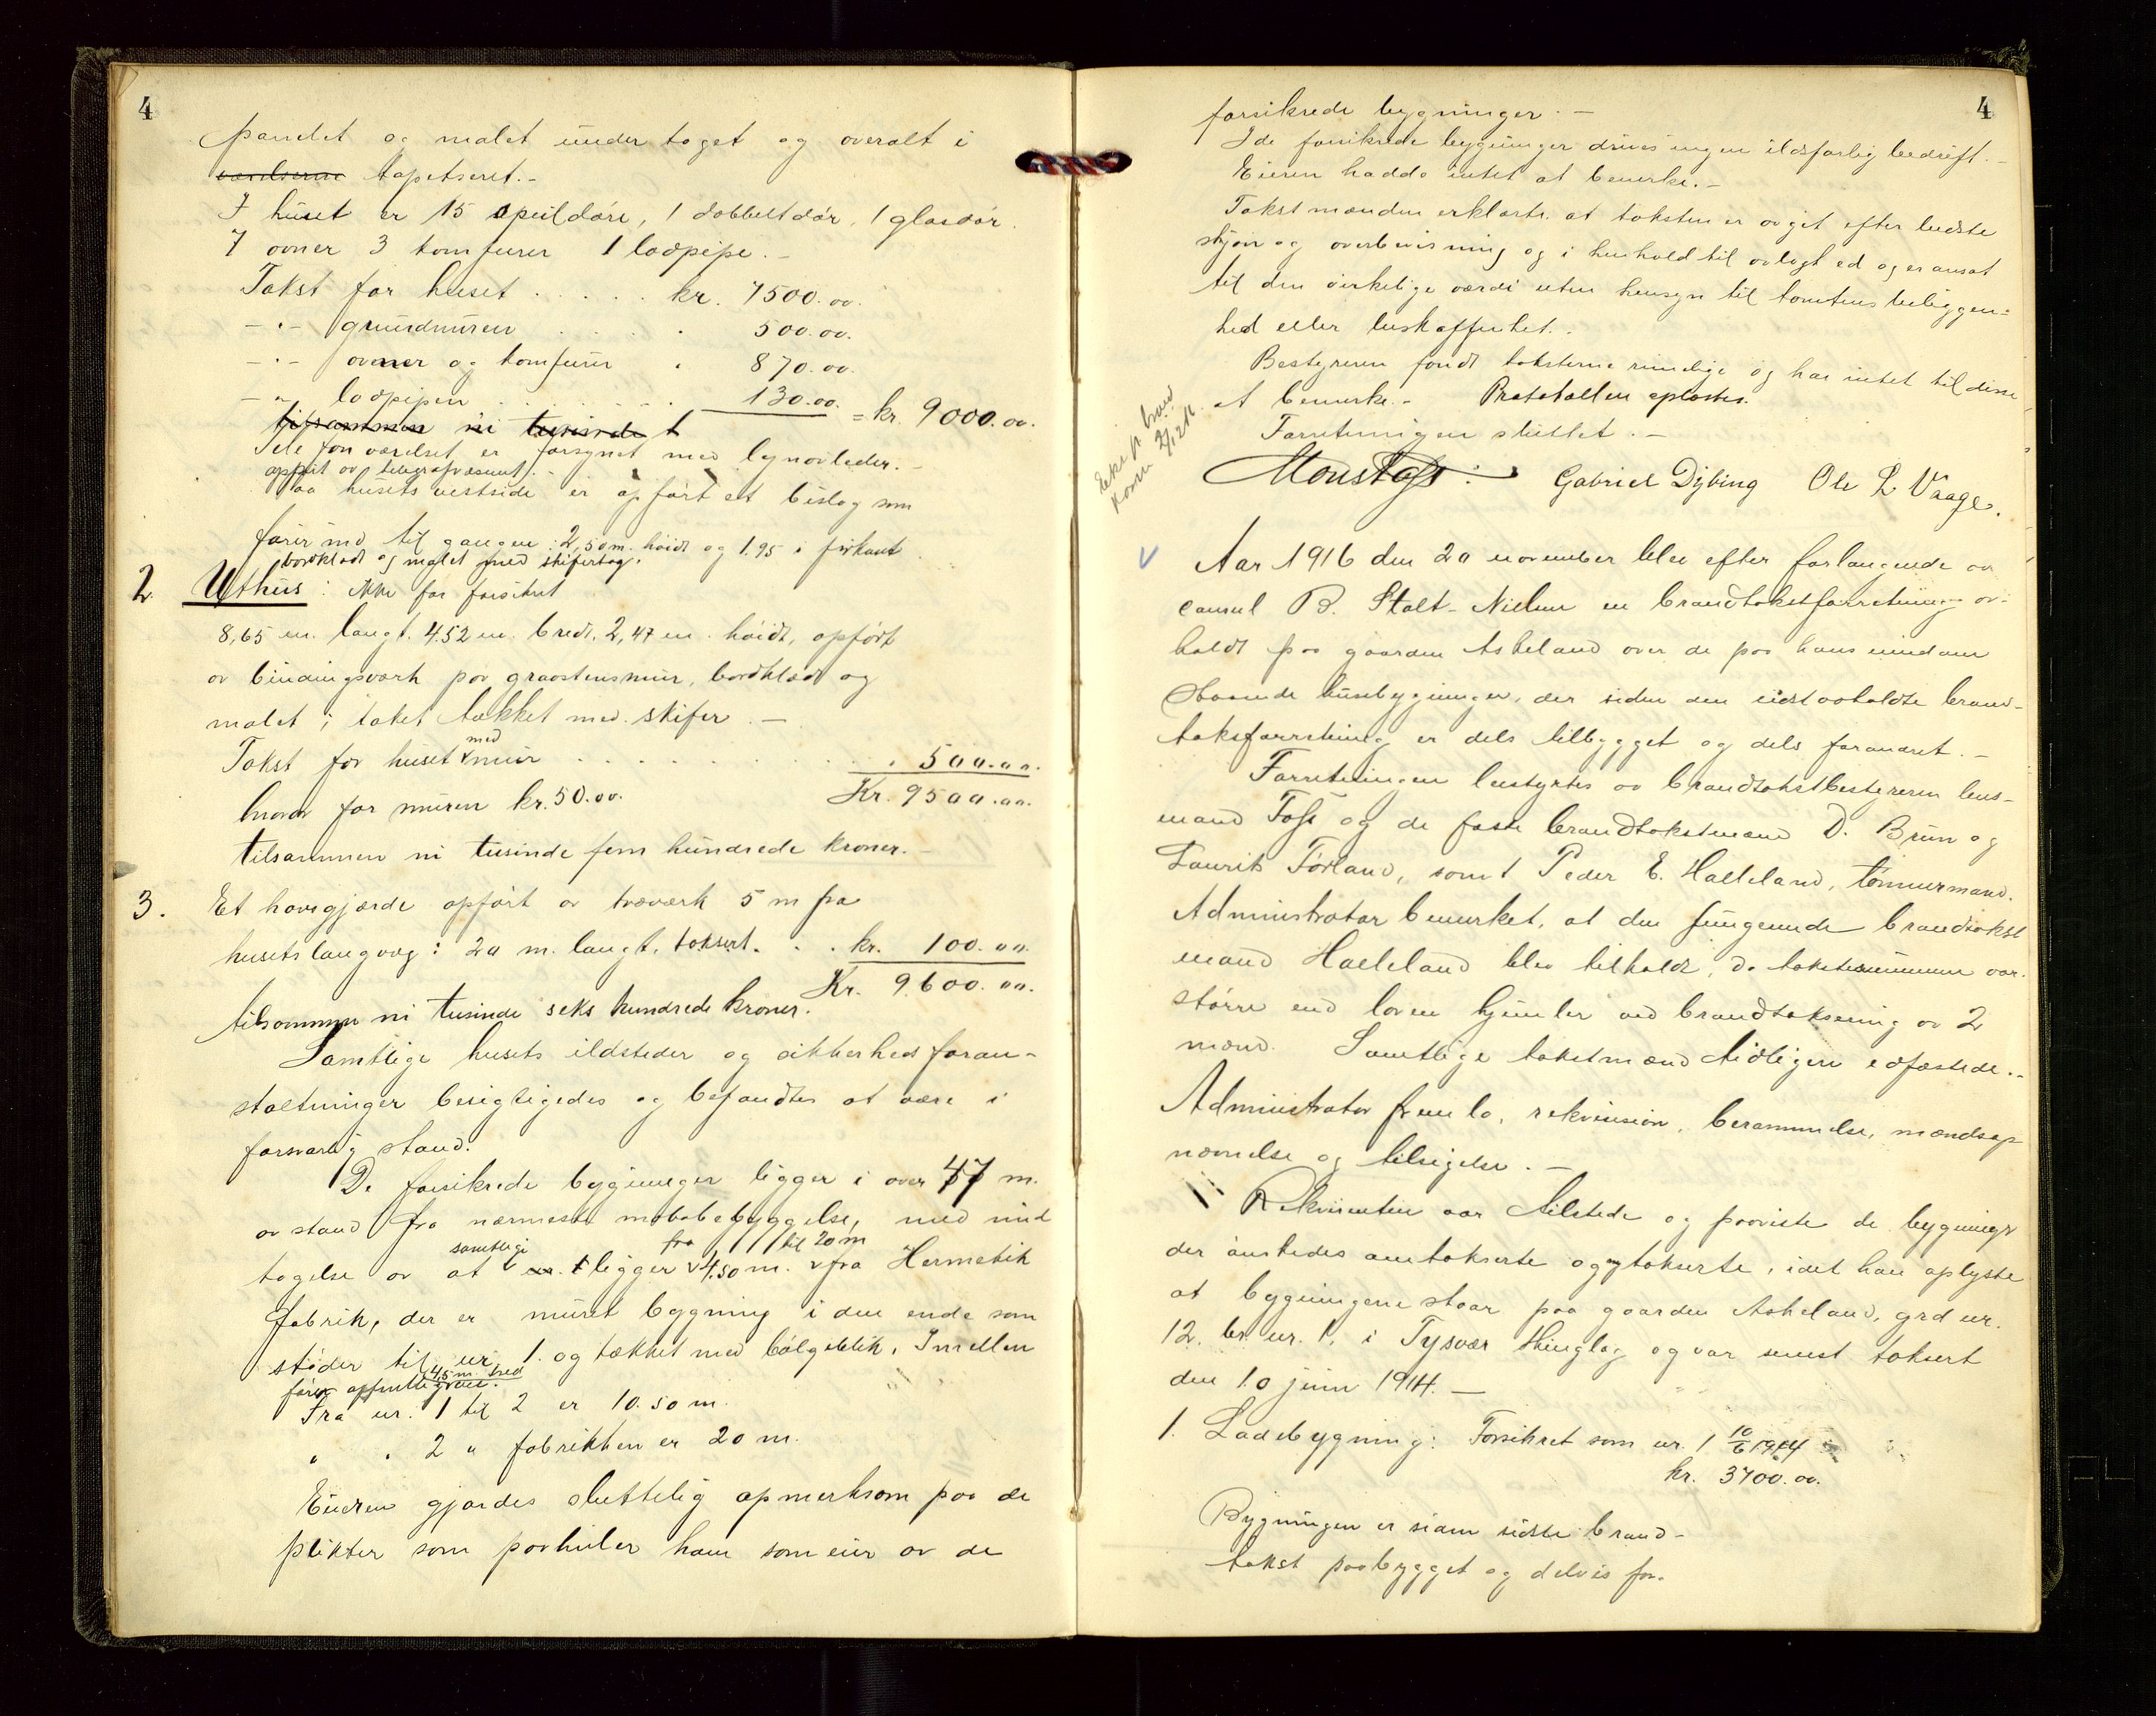 4
panelet og malet under taget og overalt i
værelserne tapetseret.-
I huset er 15 speildøre, 1 dobbeltdør, 1 glasdør.
7 ovner 3 komfurer 1 ladpipe.-
Takst for huset . . . . . kr. 7500.00.
-"- grundmuren . . . . 500.00.
-"- ovner og komfurer . 870.00.
-"- ladpipen . . . . . 130.00. = kr. 9000.00.
tilsammen ni tusinde t
Telefonværelset er forsynet med lynavleder.-
opsat av telegrafvæsenet.-
Paa husets vestside er opført et bislag som
fører ind til gangen: 2,50 m. høidt og 1.95 i firkant.
bordklædt og malet med skifertag.
2. Uthus: ikke før forsikret
8,65 m. langt. 4.52 m. bredt, 2,47 m. høidt, opført
av bindingsværk paa graastensmur, bordklædt og
malet; taket tækket med skifer.-
Takst for huset med mur . . . . . . . 500.00.
hvorav for muren kr. 50.00. Kr. 9500.00.
tilsammen ni tusinde fem hundrede kroner.-
3. Et havegjærde opført av træværk 5 m fra
husets langvæg: 20 m. langt. taksert. . . kr. 100.00.
Kr. 9600.00.
tilsammen ni tusinde seks hundrede kroner.
Samtlige husets ildsteder og sikkerhedsforan-
staltninger besigtigedes og befandtes at være i
forsvarlig stand.
De forsikrede bygninger ligger i over 47 m.
avstand fra nærmeste nabobebyggelse, med und
tagelse av at samtlige ligger fra 4.50 m. til 20 m fra Hermetik
fabrik, der er muret bygning i den ende som
støder til nr. 1. og tækket med bølgeblik. Imellem
fører offentlig vei. 4,5 m. bred
Fra nr. 1 til 2 er 10.50 m.
" " 2 " fabrikken er 20 m.
Eieren gjordes sluttelig opmerksom paa de
plikter som paahviler ham som eier av de
4
forsikrede bygninger.-
I de forsikrede bygninger drives ingen ildsfarlig bedrift.-
Eieren hadde intet at bemerke.-
Takstmændene erklærte at taksten er avgit efter bedste
skjøn og overbevisning og i henhold til avlagt ed og er ansat
til den virkelige værdi uten hensyn til tomtens beliggen-
hed eller beskaffenhet.-
Bestyreren fandt taksterne rimelige og har intet til disse
at bemerke.- Protokollen oplæstes.
Forretningen sluttet.-
Gabriel Dybing Ole L Vaage.
Aar 1916 den 20 november blev efter forlangende av
consul B. Stolt-Nielsen en brandtakstforretning av-
holdt paa gaarden Askeland over de paa hans eiendom
staaende husebygninger, der siden den sidst avholdte brand-
takstforretning er dels tilbygget og dels forandret.-
Forretningen bestyrtes av brandtakstbestyreren lens-
mand Foss og de faste brandtakstmænd D. Brun og
Laurits Førland, samt Peder E. Halleland, tømmermand.
Administrator bemerket, at den fungerende brandtakst
mand Halleland blev tilkaldt, da takstsummen var
større end loven hjemler ved brandtaksering av 2
mænd. Samtlige takstmænd tidligere edfæstede.-
Administrator fremla, rekvisision, berammelse, mændsop
nævnelse og tilsigelse.-
Rekvirenten var tilstede og paaviste de bygninger
der ønskedes omtakserte og nytakserte, idet han oplyste
at bygningene staar paa gaarden Askeland, grd nr.
12. br. nr. 1. i Tysvær thinglag og var senest taksert
den 10 juni 1914.-
1. Ladebygning: Forsikret som nr. 1 10/6 1914
kr. 3700.00.
Bygningen er siden sidste brand-
takst paabygget og delvis for-